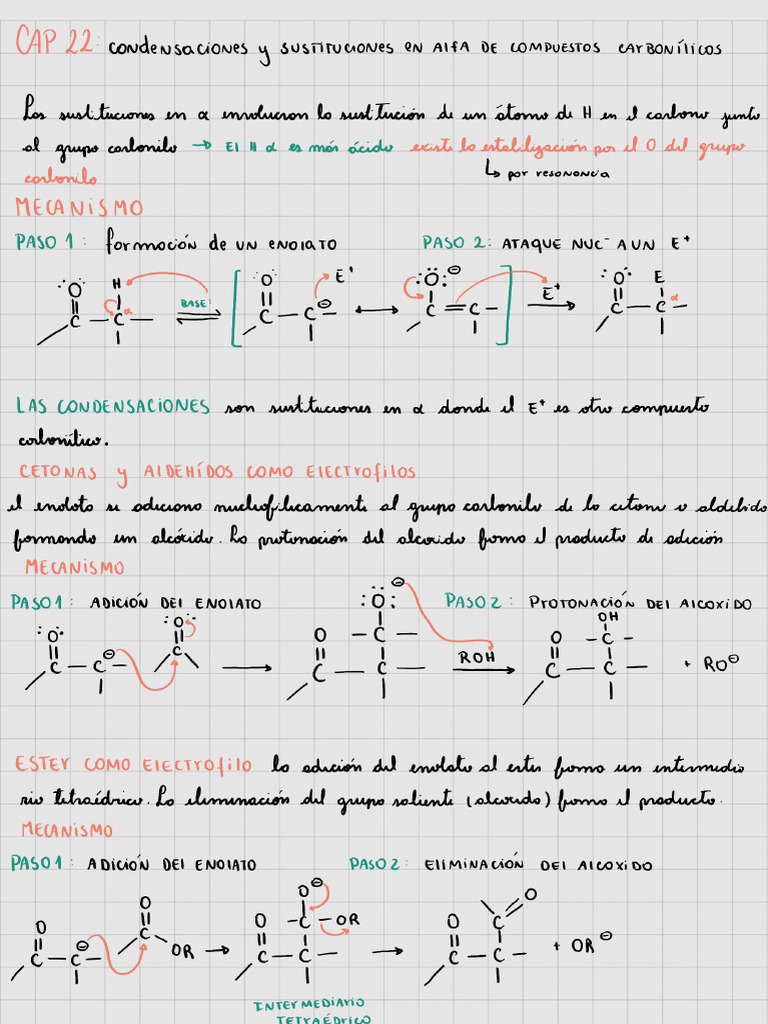 CAP 22: condensaciones y sustituciones en alfa de compuestos carbonílicos
Las sustituciones en α involucran la sustitución de un átomo de H en el carbono junto
al grupo carbonilo → El H α es más ácido existe la estabilización por el O del grupo
carbonilo ↳ por resonancia
MECANISMO
PASO 1: formación de un enolato PASO 2: ATAQUE NUC⁻ A UN E⁺
:O: H :O: E⁺ :Ö:⊖ E⁺ :O: E
C — C — α BASE: C — C⊖ — C = C — C — C — α
LAS CONDENSACIONES son sustituciones en α donde el E⁺ es otro compuesto
carbonílico.
CETONAS y ALDEHÍDOS COMO ELECTROFILOS
el enolato se adiciona nucleofílicamente al grupo carbonilo de la cetona o aldehído
formando un alcóxido. La protonación del alcoxido forma el producto de adición
MECANISMO
PASO 1: ADICIÓN DEL ENOLATO PASO 2: PROTONACIÓN DEL ALCOXIDO
:O: :O: :O:⊖ OH
O — C — ROH O — C —
C — C⊖ — C C — C — C — C — + RO⊖
ESTER COMO ELECTROFILO la adición del enolato al ester forma un intermedia
rio tetraédrico. La eliminación del grupo saliente (alcoxido) forma el producto.
MECANISMO
PASO 1: ADICIÓN DEL ENOLATO PASO 2: ELIMINACIÓN DEL ALCOXIDO
O O⊖ O
O C OR O — C — OR O C
C — C⊖ — → C — C — → C — C — + OR⊖
INTERMEDIARIO
TETRAÉDRICO